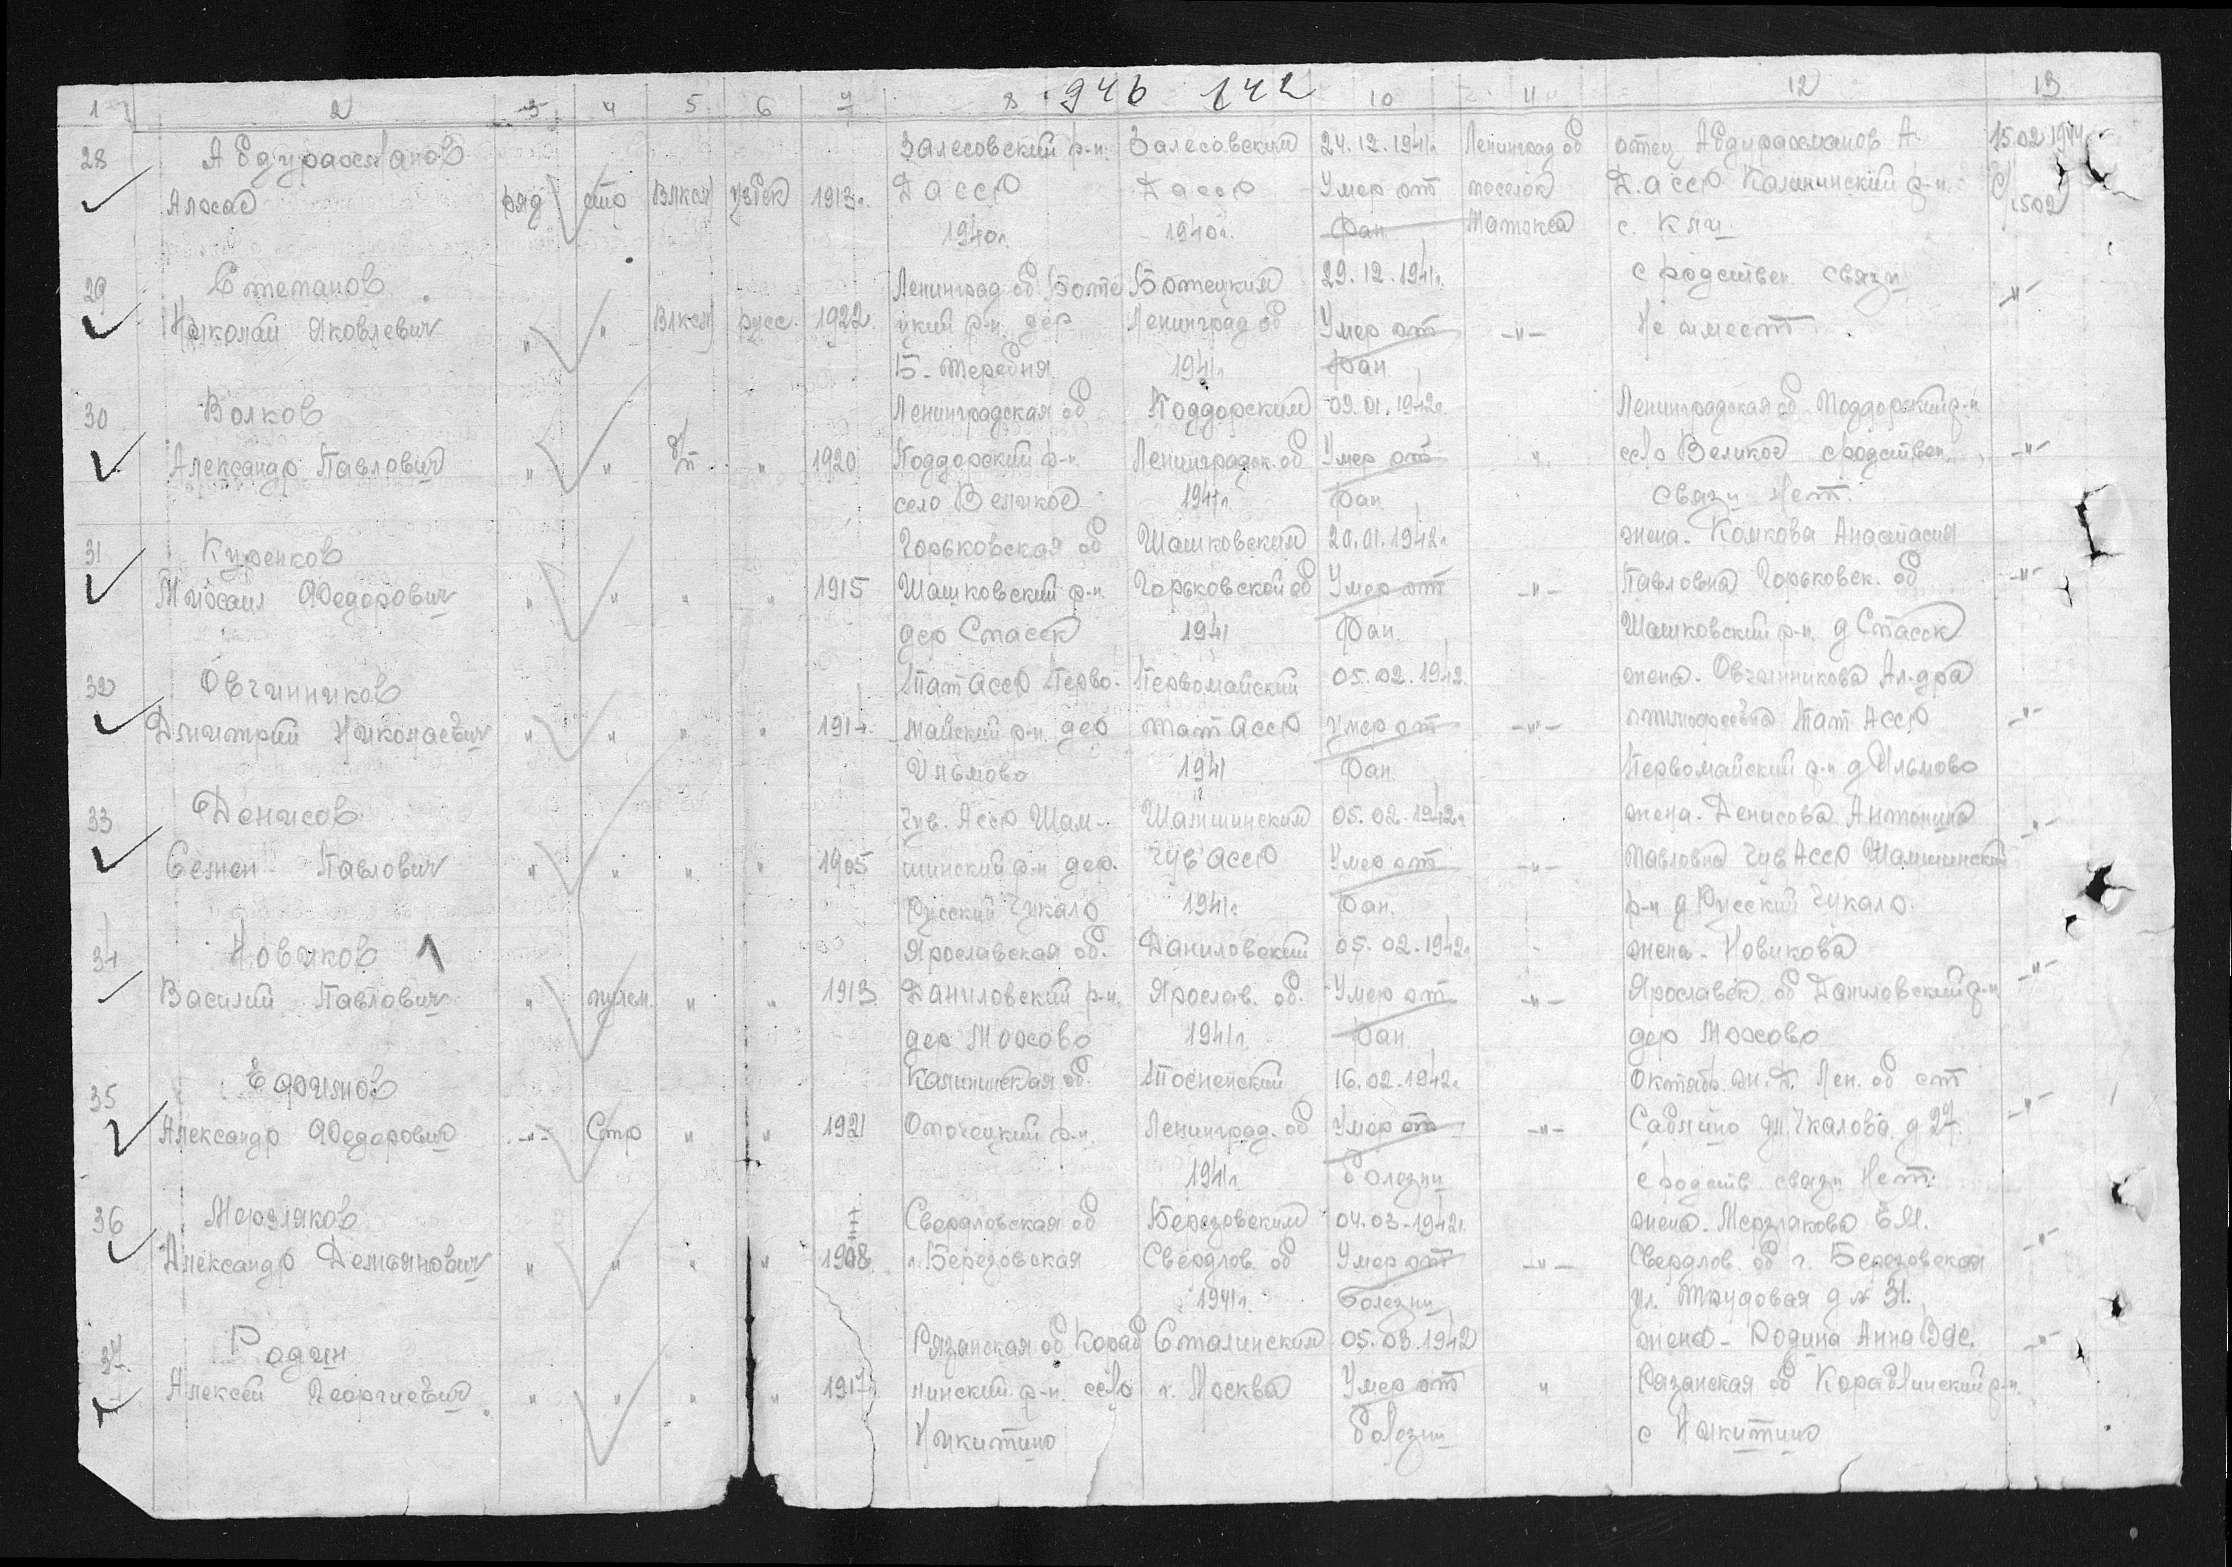 946 142
1 2 3 4 5 6 7 8 10 11 12 13
28 Абдурахманов Залесовский р-н. Залесовским 24.12.1941г. Ленинград об отец Абдурахманов А. 15.02.1944
Ахмад ряд стр ВЛКСМ узбек 1913г. ДАССР ДАССР Умер от поселок ДАССР Калининский р-н. 1502
1940г. 1940г. ран Матокса с. Кяи
29 Степанов Ленинград об Боте Ботецким 29.12.1941г. с родствен связи -"-
Николай Яковлевич " " ВЛКСМ русс. 1922 цкий р-н. дер Ленинград об Умер от -"- Не имеет.
Б-Теребня 1941г ран
30 Волков Ленинградская об Поддорским 09.01.1942г. Ленинградская об Поддорский р-н
Александр Павлович " " б/п " 1920 Поддорский р-н. Ленинградск. об Умер от " село Великое с родствен. -"-
село Великое 1941г. ран связи Нет.
31 Куренков Горьковская об Шашковским 20.01.1942г жена. Комкова Анастасия
Михаил Федорович " " " " 1915 Шашковский р-н. Горьковской об Умер от -"- Павловна Горьковск. об -"-
дер Спасск 1941 ран. Шашковский р-н. д Спасск
32 Овчинников Тат АССР Перво- Первомайский 05.02.1942. жена. Овчинникова Ал-дра
Дмитрий Николаевич " " " " 1914. майский р-н. дер Тат АССР умер от -"- Тимофеевна Тат АССР -"-
Ильмово 1941 ран. Первомайский р-н д Ильмово
33 Денисов Чув. АССР Шам- Шамшинским 05.02.1942г жена. Денисова Антонина -"-
Семен Павлович " " " " 1905 шинский р-н дер. Чув АССР Умер от -"- Павловна Чув АССР Шамшинский
Русский Чукало 1941г ран. р-н д Русский Чукало.
34 Новиков Ярославская об. Даниловский 05.02.1942г жена - Новикова
Василий Павлович " пулем. " " 1913 Даниловский р-н. Ярослав. об. Умер от -"- Ярославск. об Даниловский р-н -"-
дер Мохово 1941г. ран. дер Мохово
35 Ефимов Калининская об. Тосненский 16.02.1942г Октябр. ж.д. Лен. об ст
Александр Федорович -"- Стр " " 1921 Опочецкий р-н. Ленинград. об Умер от -"- Саблино ул. Чкалова д 27. -"-
1941г. болезни с родств. связи Нет.
36 Мерзляков Свердловская об Березовским 04.03.1942г. жена. Мерзлякова Е.М.
Александр Демьянович " " " " 1908 г. Березовская Свердлов. об Умер от -"- Свердлов. об г. Березовская -"-
1941г. болезни ул. Трудовая д № 31.
37 Родин Рязанская об Кораб Сталинским 05.03.1942 жена - Родина Анна -"-
Алексей Георгиевич " " " " 1917 линский р-н. село г. Москва Умер от " Рязанская об Кораблинский р-н.
Никитино болезни с Никитино